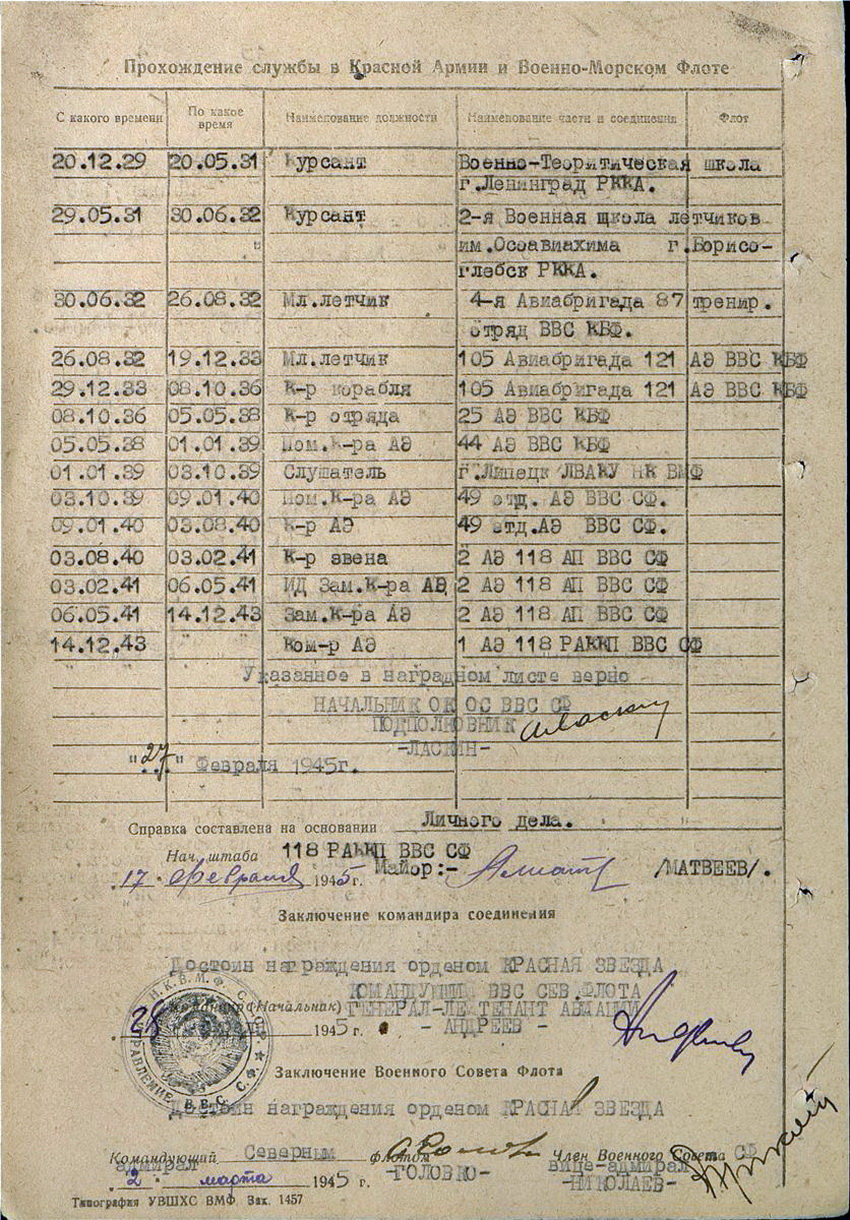 Прохождение службы в Красной Армии и Военно-Морском Флоте
С какого времени По какое время Наименование должности Наименование части и соединения Флот
20.12.29 20.05.31 Курсант Военно-Теоритическая школа
г.Ленинград РККА.
29.05.31 30.06.32 Курсант 2-я Военная школа летчиков
" им.Осоавиахима г.Борисо-
глебск РККА.
30.06.32 26.08.32 Мл.летчик 4-я Авиабригада 87 тренир.
отряд ВВС КБФ.
26.08.32 19.12.33 Мл.летчик 105 Авиабригада 121 АЭ ВВС КБФ
29.12.33 08.10.36 К-р корабля 105 Авиабригада 121 АЭ ВВС КБФ
08.10.36 05.05.38 К-р отряда 25 АЭ ВВС КБФ
05.05.38 01.01.39 Пом.К-ра АЭ 44 АЭ ВВС КБФ
01.01.39 03.10.39 Слушатель г.Липецк ЛВАКУ НК ВМФ
03.10.39 09.01.40 Пом.К-ра АЭ 49 отд. АЭ ВВС СФ.
09.01.40 03.08.40 К-р АЭ 49 отд.АЭ ВВС СФ.
03.08.40 03.02.41 К-р звена 2 АЭ 118 АП ВВС СФ
03.02.41 06.05.41 ИД Зам.К-ра АЭ 2 АЭ 118 АП ВВС СФ
06.05.41 14.12.43 Зам.К-ра АЭ 2 АЭ 118 АП ВВС СФ
14.12.43 " " Ком-р АЭ 1 АЭ 118 РАККП ВВС СФ
Указанное в наградном листе верно
НАЧАЛЬНИК ОК ОС ВВС СФ
ПОДПОЛКОВНИК
-ЛАСКИН-
"27" Февраля 1945г.
Справка составлена на основании Личного дела.
Нач. штаба 118 РАККП ВВС СФ
17 февраля 1945 г. Майор:- /МАТВЕЕВ/.
Заключение командира соединения
Достоин награждения орденом КРАСНАЯ ЗВЕЗДА
КОМАНДУЮЩИЙ ВВС СЕВ.ФЛОТА
Командир (Начальник) ГЕНЕРАЛ-ЛЕЙТЕНАНТ АВИАЦИИ
28 1945 г. - АНДРЕЕВ -
Заключение Военного Совета Флота
Достоин награждения орденом КРАСНАЯ ЗВЕЗДА
Командующий Северным флотом Член Военного Совета СФ
адмирал -ГОЛОВКО- вице-адмирал
2 марта 1945 г. -НИКОЛАЕВ-
Типография УВШХС ВМФ. Зак. 1457